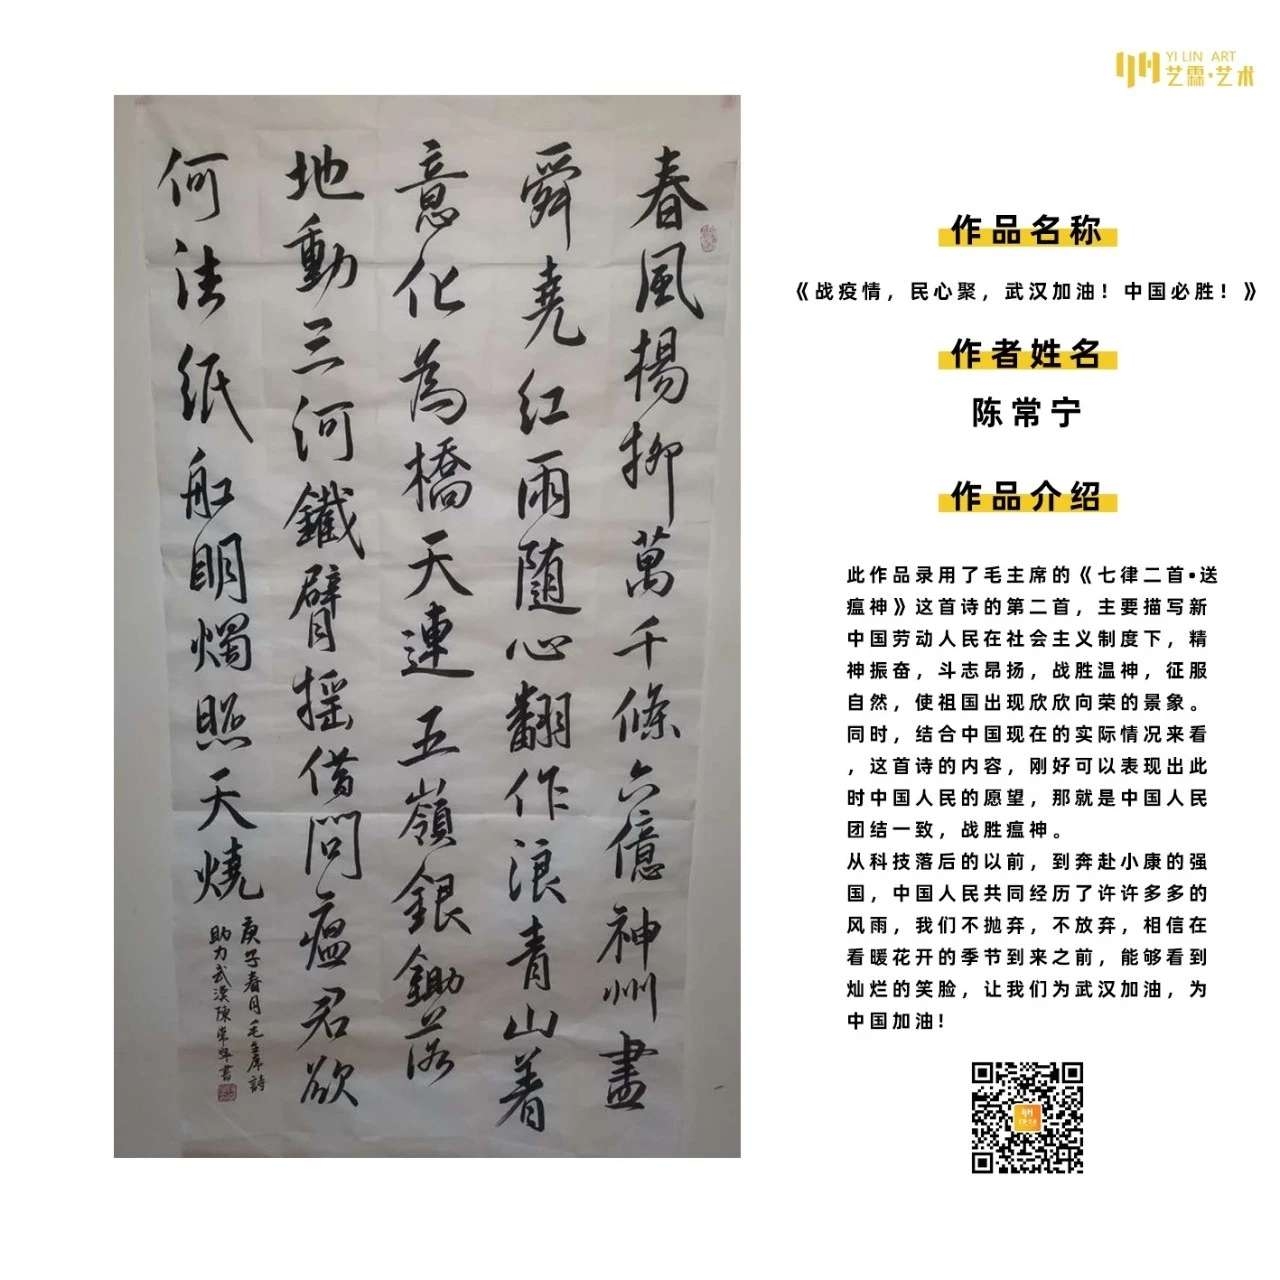 YI LIN ART
艺霖·艺术
春風楊柳萬千條六億神州盡
舜堯紅雨隨心翻作浪青山着
意化為橋天連五嶺銀鋤落
地動三河鐵臂摇借問瘟君欲
何法纸船明燭照天燒
庚子春月毛主席詩
助力武漢陳常寧書
作品名称
《战疫情，民心聚，武汉加油！中国必胜！》
作者姓名
陈常宁
作品介绍
此作品录用了毛主席的《七律二首•送
瘟神》这首诗的第二首，主要描写新
中国劳动人民在社会主义制度下，精
神振奋，斗志昂扬，战胜温神，征服
自然，使祖国出现欣欣向荣的景象。
同时，结合中国现在的实际情况来看
，这首诗的内容，刚好可以表现出此
时中国人民的愿望，那就是中国人民
团结一致，战胜瘟神。
从科技落后的以前，到奔赴小康的强
国，中国人民共同经历了许许多多的
风雨，我们不抛弃，不放弃，相信在
春暖花开的季节到来之前，能够看到
灿烂的笑脸，让我们为武汉加油，为
中国加油！